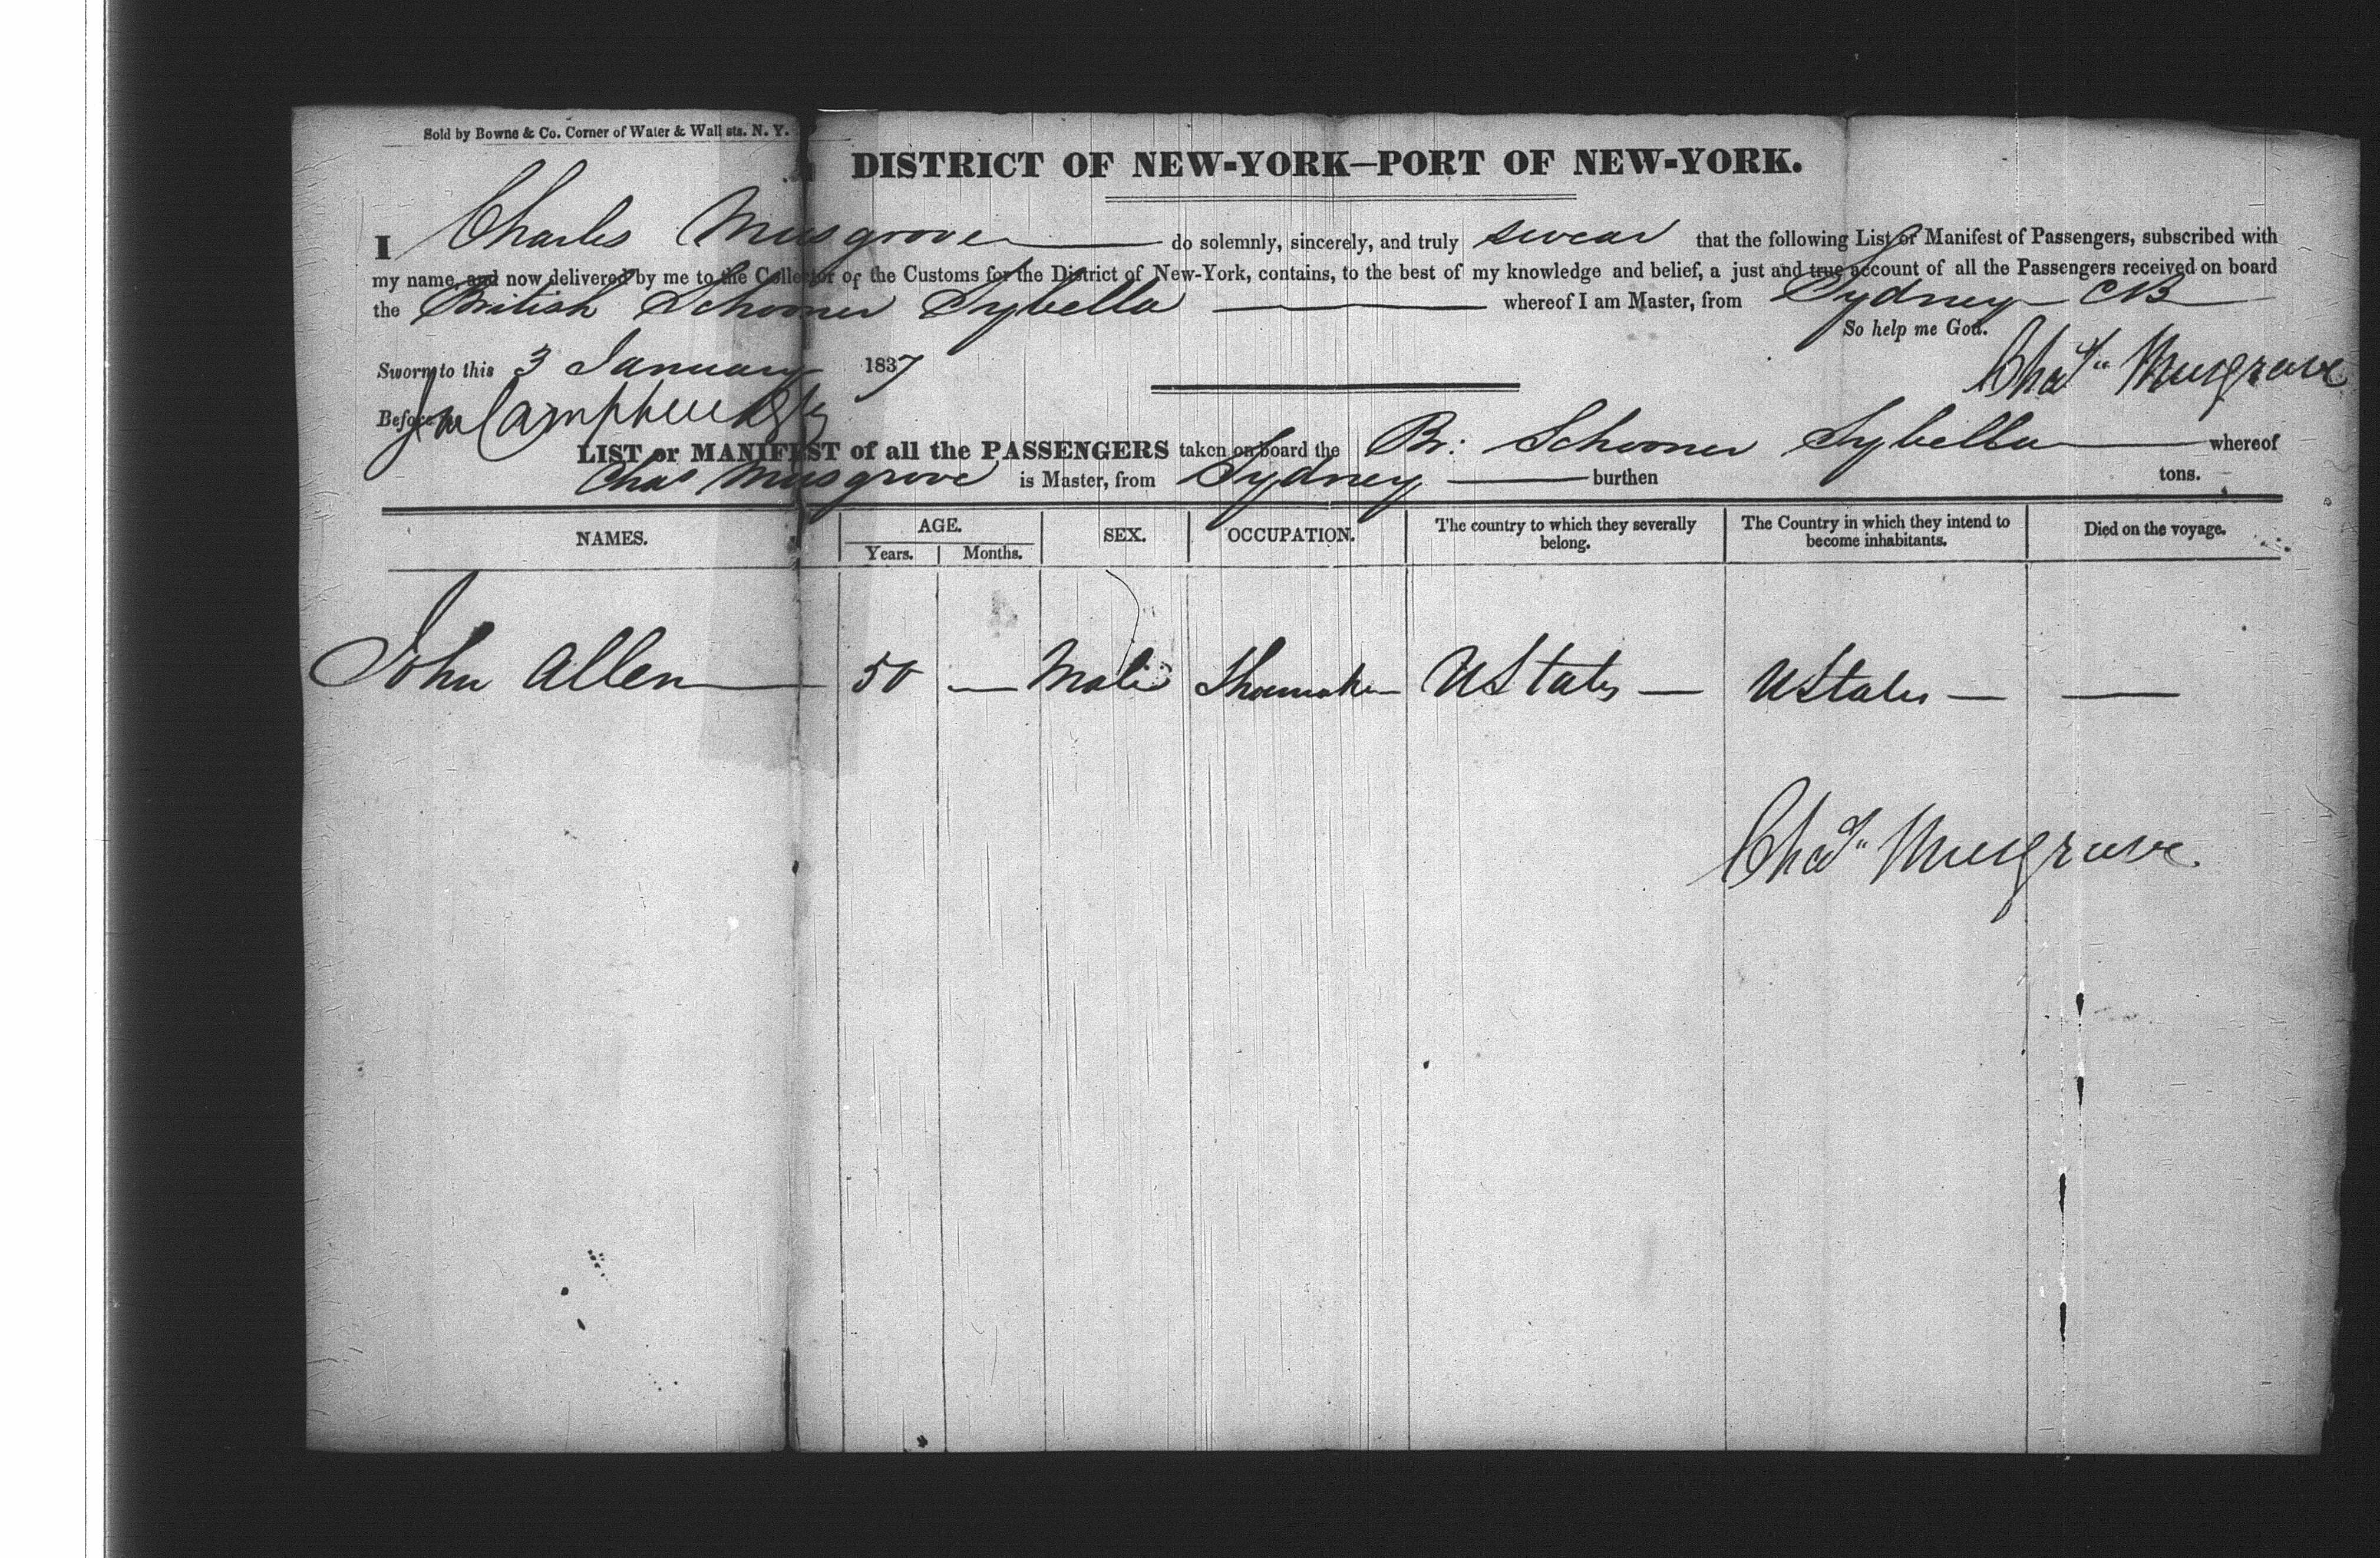 Sold by Bowne & Co. Corner of Water & Wall sts. N. Y.
DISTRICT OF NEW-YORK—PORT OF NEW-YORK.
I Charles Musgrove do solemnly, sincerely, and truly swear that the following List or Manifest of Passengers, subscribed with
my name, and now delivered by me to the Collector of the Customs for the District of New-York, contains, to the best of my knowledge and belief, a just and true account of all the Passengers received on board
the British Schooner Sybella whereof I am Master, from Sydney CB
So help me God.
Sworn to this 3 January 1837
Chas Musgrave
Before me Campbell
LIST or MANIFEST of all the PASSENGERS taken on board the Br: Schooner Sybella whereof
Chas Musgrove is Master, from Sydney burthen tons.
NAMES. AGE. Years. Months. SEX. OCCUPATION. The country to which they severally belong. The Country in which they intend to become inhabitants. Died on the voyage.
John Allen 50 — Male Shoemaker UStates — UStates — —
Chas Musgrave